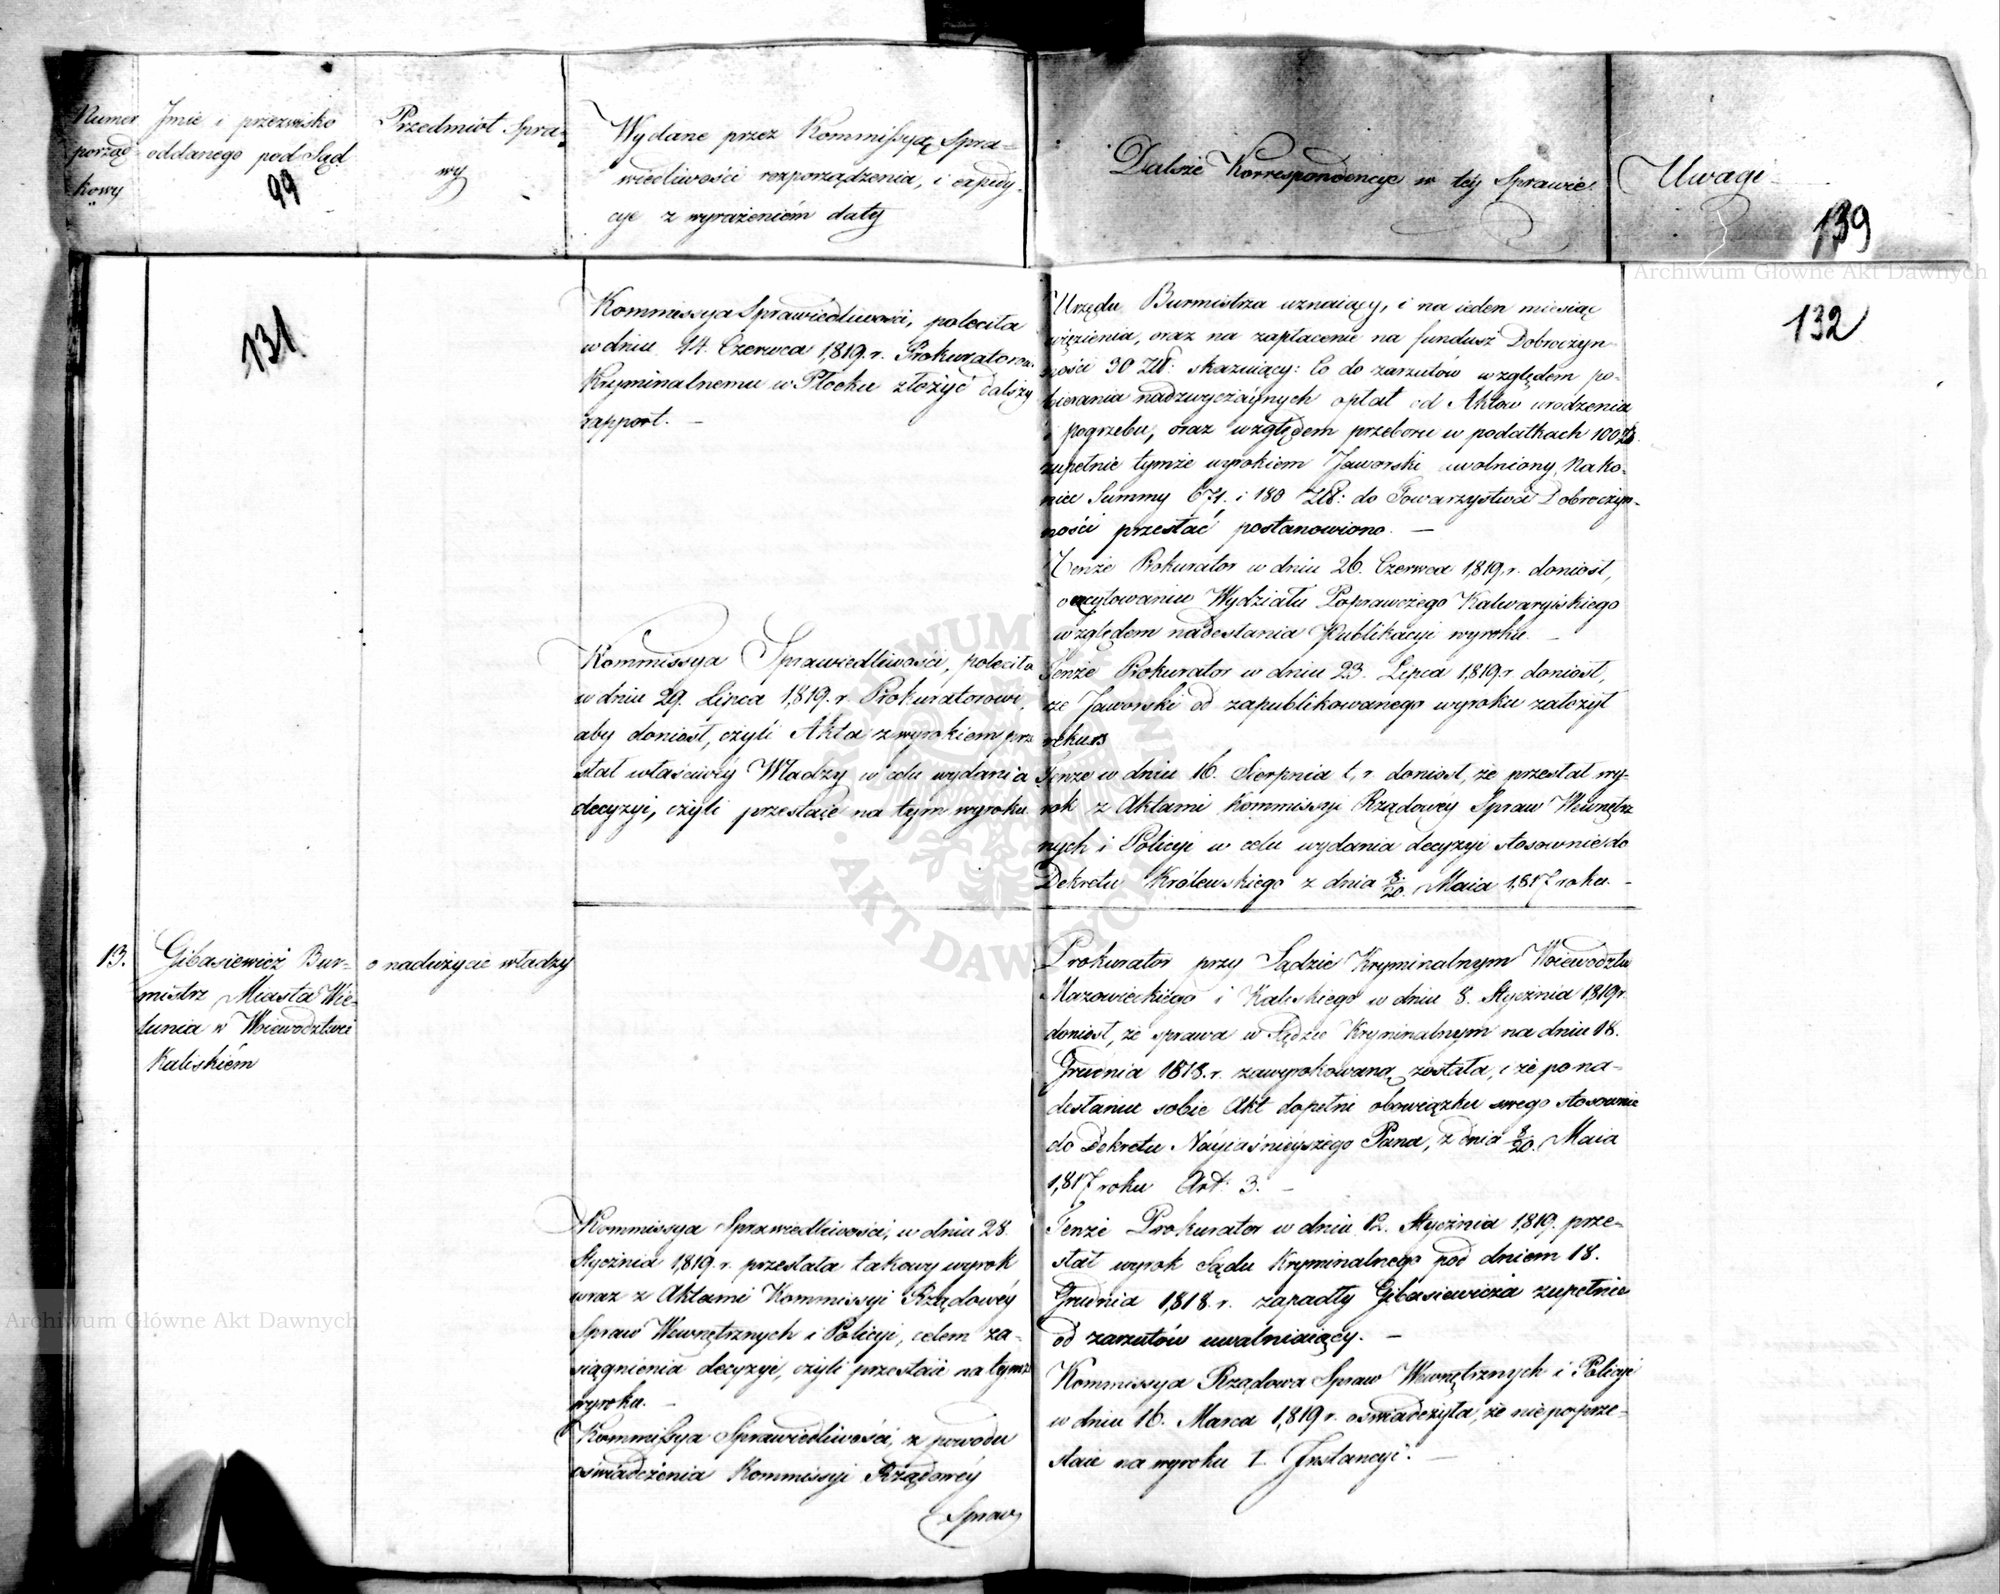 Numer
porząd-
kowy
Jmie i przezwisko
oddanego pod Sąd
99
Przedmiot Spra-
wy
Wydane przez Kommissyą Spra-
wiedliwości rozporządzenia, i expedy-
cye z wyrażeniem daty
Dalsze Korrespondencye w téy Sprawie.
Uwagi
139
131
132
Kommissya Sprawiedliwości, poleciła
w dniu 14. Czerwca 1819. r. Prokuratorowi
Kryminalnemu w Płocku złożyć dalszy
rapport. —
Kommissya Sprawiedliwości, poleciła
w dniu 29. Lipca 1819. r. Prokuratorowi,
aby doniosł, czyli Akta z wyrokiem prze
słał właściwéy Władzy w celu wydania
decyzyi, czyli przestaie na tym wyroku.
Urzędu Burmistrza uznaiący, i na ieden miesiąc
więzienia, oraz na zapłacenie na fundusz Dobroczyn
ności 30 Złł: skazuiący: Co do zarzutów względem po-
bierania nadzwyczáynych opłat od Aktów urodzenia
i pogrzebu, oraz względem przeboru w podatkach 100 Zł.
zupełnie tymże wyrokiem Jaworski uwolniony, Nako-
niec Summy 671. i 180 Złł: do Towarzystwa Dobroczyn-
ności przesłać postanowiono. —
Tenże Prokurator w dniu 26. Czerwca 1819. r. doniosł,
o excytowaniu Wydziału Poprawczego Kalwaryiskiego
względem nadesłania Publikacyi wyroku. —
Tenże Prokurator w dniu 23. Lipca 1819 r. doniosł,
że Jaworski od zapublikowanego wyroku założył
rekurs
Tenże w dniu 16. Sierpnia t. r. doniosł, że przesłał wy-
rok z Aktami Kommissyi Rządowéy Spraw Wewnętrz
nych i Policyi w celu wydania decyzyi stosownie do
Dekretu Królewskiego z dnia 8/20. Maia 1817 roku. —
13.
Gibasiewicz Bur-
mistrz Miasta Wie-
lunia w Woiewodztwie
Kaliskiém
o nadużycie władzy
Kommissya Sprawiedliwości, w dniu 28.
Stycznia 1819. r. przesłała takowy wyrok
wraz z Aktami Kommissyi Rządowéy
Spraw Wewnętrznych i Policyi, celem za-
siągnienia decyzyi, czyli przestaie na tymże
wyroku. —
Kommissya Sprawiedliwości, z powodu
oświadczenia Kommissyi Rządowéy
Spraw
Prokurator przy Sądzie Kryminalnym Woiewodztw
Mazowieckiego i Kaliskiego w dniu 8. Stycznia 1819 r.
doniosł, że sprawa w Sądzie Kryminalnym na dniu 18.
Grudnia 1818. r. zawyrokowaną została, i że po na-
desłaniu sobie Akt dopełni obowiązku swego stosownie
do Dekretu Nayiaśnieyszego Pana, z dnia 8/20. Maia
1817 roku Art: 3. —
Tenże Prokurator w dniu 12. Stycznia 1819. prze-
słał wyrok Sądu Kryminalnego pod dniem 18.
Grudnia 1818. r. zapadły Gibasiewicza zupełnie
od zarzutów uwalniaiący. —
Kommissya Rządowa Spraw Wewnętrznych i Policyi
w dniu 16. Marca 1819 r. oświadczyła, że nie poprze-
staie na wyroku I. Instancyi. —
Archiwum Główne Akt Dawnych
Archiwum Główne Akt Dawnych
ARCHIWUM GŁÓWNE AKT DAWNYCH